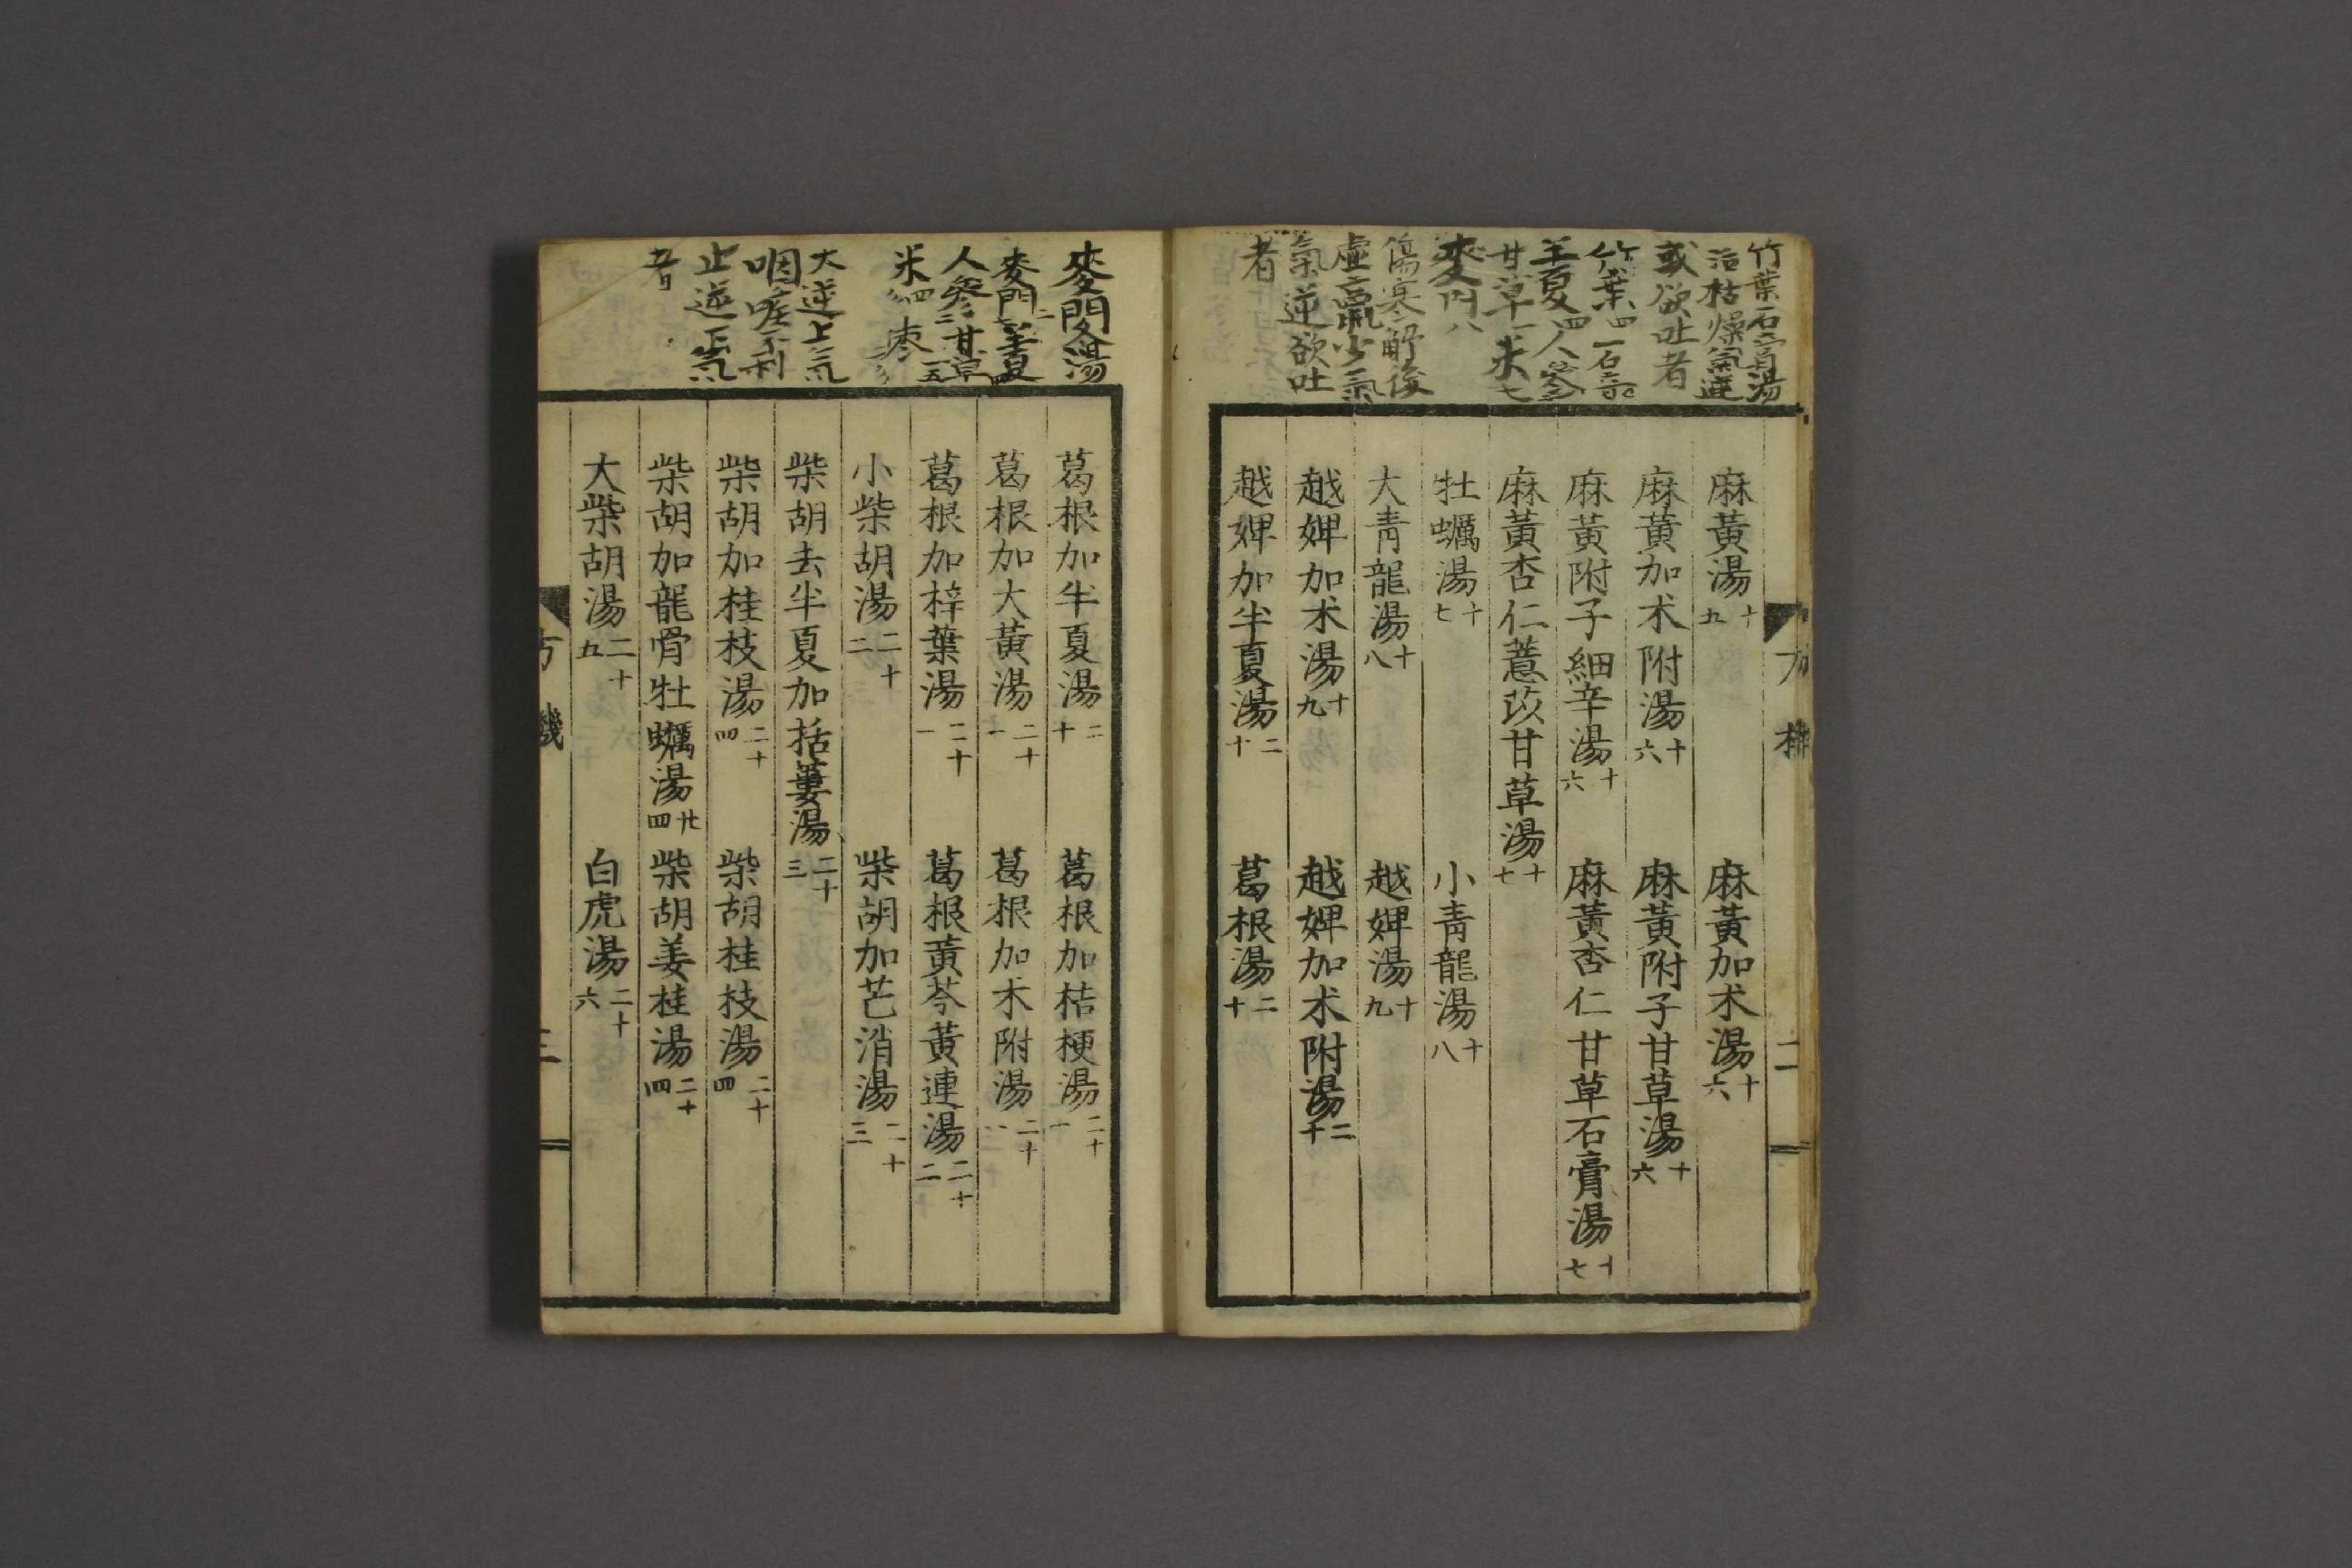 竹葉石膏湯
治枯燥氣逆
或欲吐者
竹葉四 一石膏
半夏四人參
甘草一米七
麥門八
傷寒解後
虛羸少氣
氣逆欲吐
者
麻黃湯十五
麻黃加朮湯十六
麻黃加朮附湯十六
麻黃附子甘草湯十六
麻黃附子細辛湯十六
麻黃杏仁甘草石膏湯十七
麻黃杏仁薏苡甘草湯十七
牡蠣湯十七
小青龍湯十八
大青龍湯十八
越婢湯十九
越婢加朮湯十九
越婢加朮附湯二十
越婢加半夏湯二十
葛根湯二十
二
麥門冬湯
麥門二半夏
人參二甘草
米四 棗
大逆上氣
咽喉不利
止逆下氣
者
葛根加半夏湯二十
葛根加桔梗湯二十一
葛根加大黃湯二十一
葛根加朮附湯二十一
葛根加梓葉湯二十一
葛根黃芩黃連湯二十二
小柴胡湯二十二
柴胡加芒消湯二十三
柴胡去半夏加括蔞湯二十三
柴胡加桂枝湯二十四
柴胡桂枝湯二十四
柴胡加龍骨牡蠣湯廿四
柴胡姜桂湯二十四
大柴胡湯二十五
白虎湯二十六
方機
三